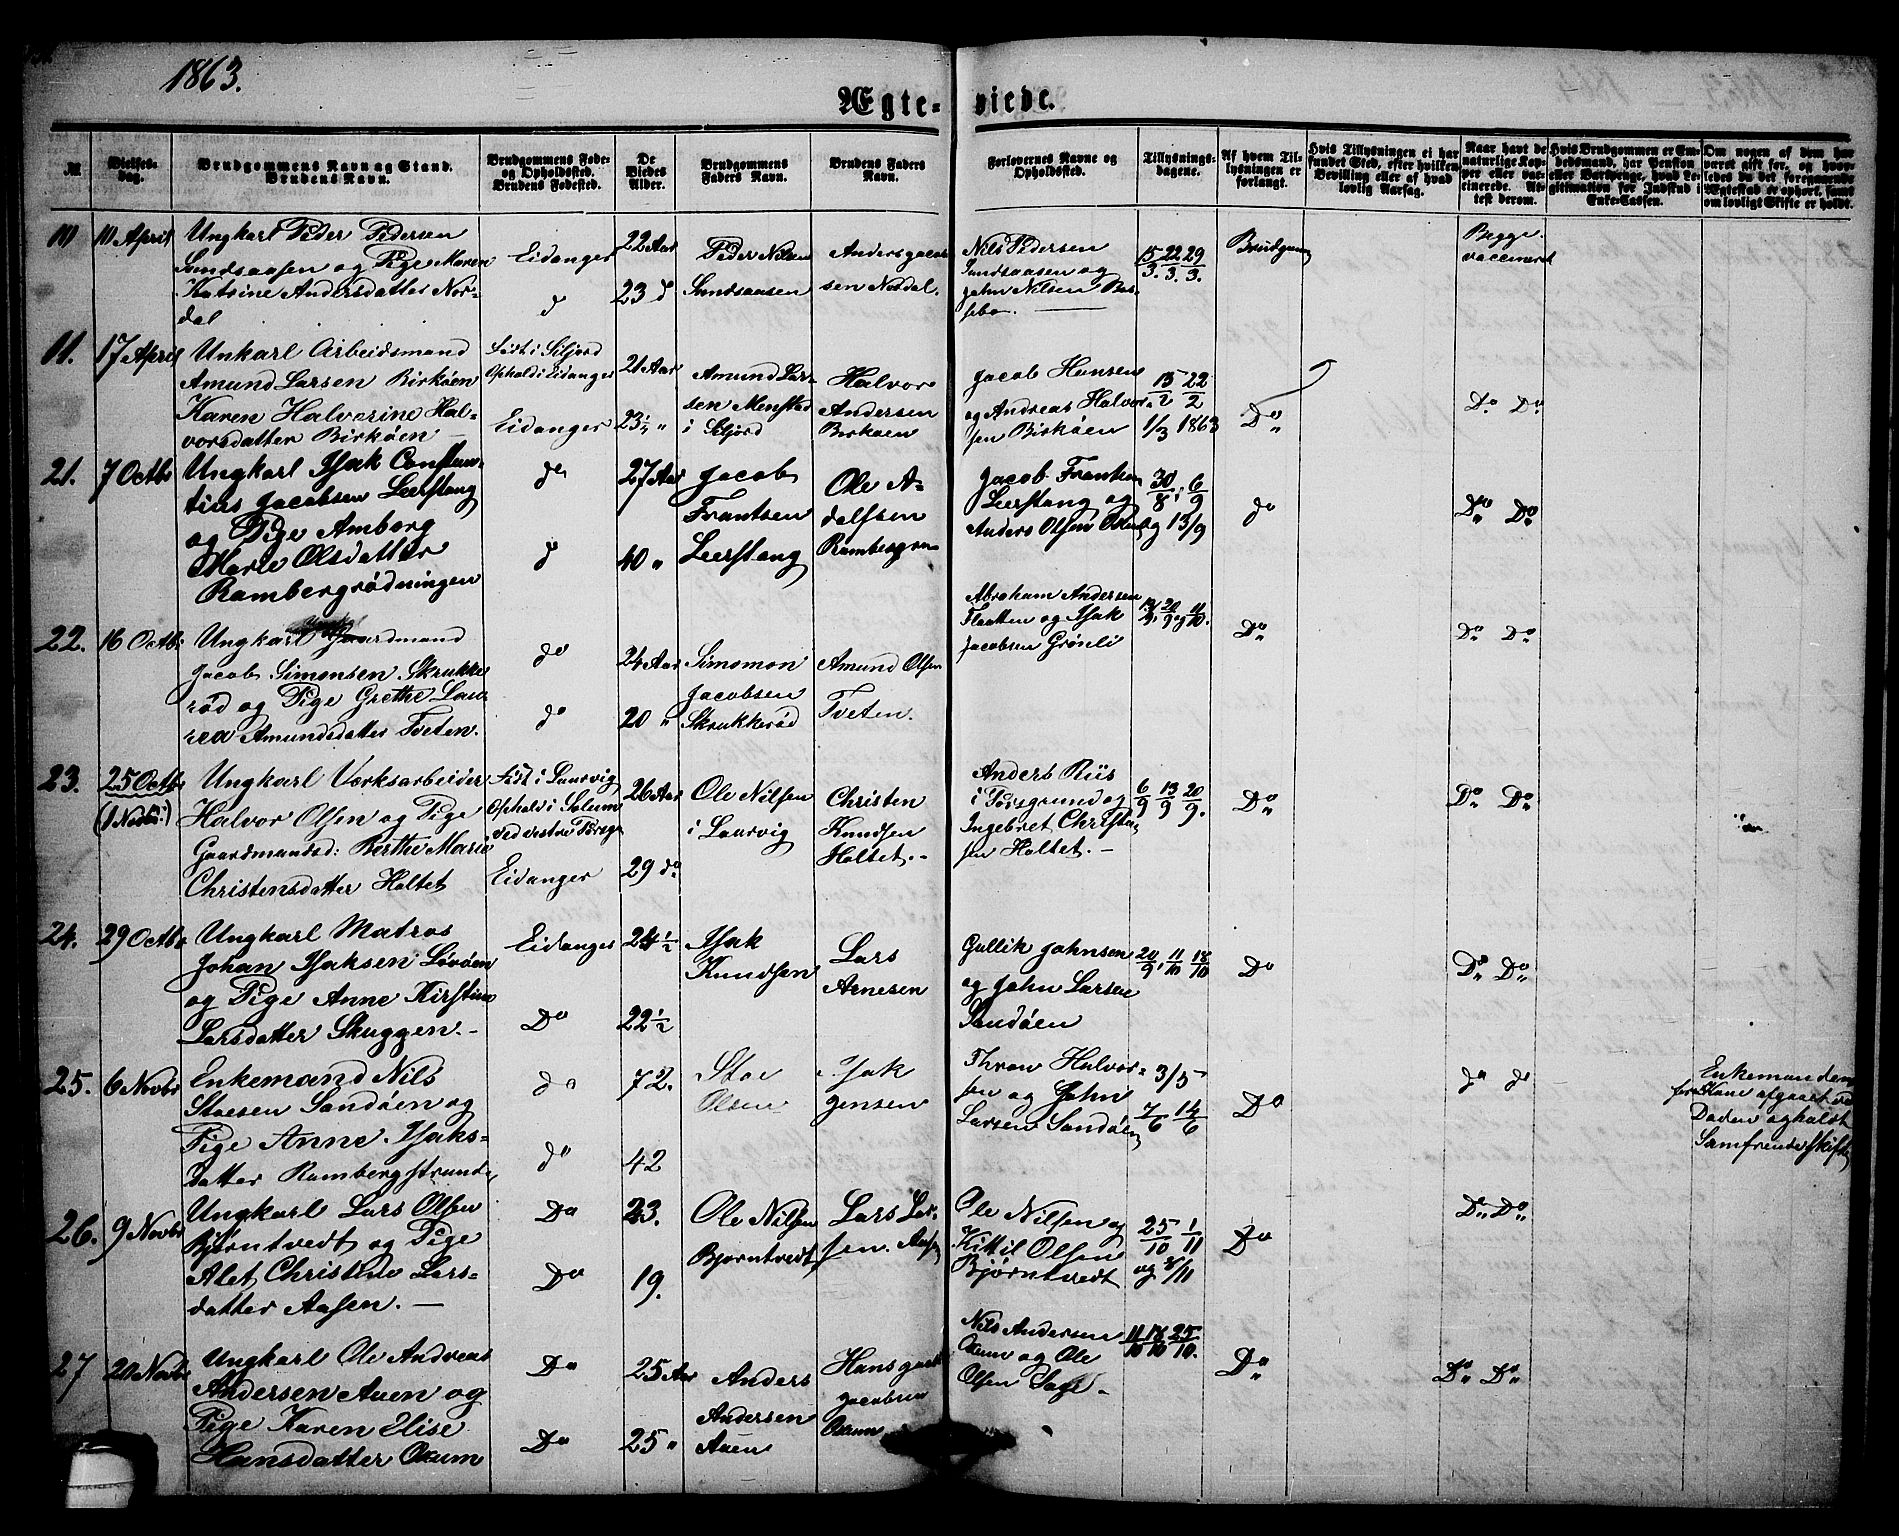 1863.
Ægte-viede.
№
Vielses-dag.
Brudgommens Navn og Stand. Brudens Navn.
Brudgommens Føde- og Opholdssted. Brudens Fødested.
De Viedes Alder.
Brudgommens Faders Navn.
Brudens Faders Navn.
Forlovernes Navne og Opholdssted.
Tillysnings-dagene.
Af hvem Tillysningen er forlangt.
Hvis Tillysningen ei har fundet Sted, efter hvilken Bevilling eller af hvad lovlig Aarsag.
Naar havt de naturlige Kopper eller vaccinerede. Attest derom.
Hvis Brudgommen er Embedsmand, har Pension eller Vartpenge, hvad Legitimation for Indskud i Enke-Cassen.
Om nogen af dem har været gift før, og hvorledes da det foregaaende Ægteskab er ophørt, samt om lovligt Skifte er holdt.
10 10 April Ungkarl Peder Pedersen
Sundsaasen og Pige Maren
Katrine Andersdatter Nordal
Eidanger
do
22 Aar
23 do
Peder Nilsen
Sundsaasen
Anders
sen Nordal.
Nils Pedersen
Sundsaasen og
John Nilsen
15/3. 22/3. 29/3.
Brudgom
Begge
vaccineret
11. 17 April Unkarl Arbeidsmand
Amund Larsen Birkøen
Karen Halvorine Hal-
vorsdatter Birkøen
Født i Siljord
Ophold i Eidanger
Eidanger
21 Aar
23½ "
Amund Lar-
sen Menstad
i Siljord
Halvor
Andersen
Birkøen
Jacob Hansen
og Andreas Halvor-
sen Birkøen
15/2 22/2
1/3 1863
Do
Do Do
21. 7 Octbr Ungkarl Isak Constan-
tius Jacobsen Leerstang
og Pige Amborg
Marie Olsdatter
Rambergrødningen
do
do
27 Aar
40 "
Jacob
Frantsen
Leerstang
Ole A-
dolfsen
Jacob Frantsen
Leerstang og
Anders Olsen
30/8, 6/9
og 13/9
do
Do Do
22. 16 Octbr Ungkarl Gaardmand
Jacob Simonsen Skrukke
rød og Pige Grethe Lau
rea Amundsdatter Tveten.
do
do
24 Aar
20 "
Simomon
Jacobsen
Skrukkerød
Amund Olsen
Tveten.
Abraham Andersen
Flaatten og Isak
Jacobsen Grønli
13/9, 20/9 og 11/10.
Do
Do Do
23. 25 Octbr
(1 Novbr)
Ungkarl Værksarbeider
Halvor Olsen og Pige
Gaardmandsd: Berthe Marie
Christensdatter Holtet
Født i Laurvig
Ophold i Solum
ved vestre Porsgr
Eidanger
26 Aar
29 do
Ole Nilsen
i Laurvig
Christen
Knudsen
Holtet.-
Anders Riis
i Porsgrund og
Ingebret Christen
sen Holtet.-
6/9 13/9 20/9.
Do
Do Do
24. 29 Octbr Ungkarl Matros
Johan Isaksen Løvøen
og Pige Anne Kirstine
Larsdatter Skuggen.-
Eidanger
Do
24½
22½
Isak
Knudsen
Lars
Arnesen
Gullik Johnsen
og John Larsen
Sandøen
20/9, 11/10 18/10
Do
Do Do
25. 6 Novbr Enkemand Nils
Stoesen Sandøen og
Pige Anne Isaks-
datter Rambergstrand
do
do
72.
42
Stoe
Olsen
Isak
Jensen
Thron Halvor-
sen og John
Larsen Sandøen
3/5
7/6 14/6
Do
do do
Enkemandens
før Kone afgaaet ved
Døden og holdt
Samfrende Skifte
26. 9 Novbr Ungkarl Lars Olsen
Bjørntvedt og Pige
Alet Christine Lars-
datter Aasen.-
Do
Do
23.
19.
Ole Nilsen
Bjørntvedt
Lars Lar-
sen. Aasen
Ole Nilsen og
Kittil Olsen
Bjørntvedt
25/10 1/11
og 8/11
Do
Do Do
27 20 Novbr Ungkarl Ole Andreas
Andersen Auen og
Pige Karen Elise
Hansdatter Oxum
Do
Do
25 Aar
25 "
Anders
Andersen
Auen
Hans
Jacobsen
Oxum
Nils Andersen
Oxum og Ole
Olsen
11/10 18/10 25/10.
Do
Do Do